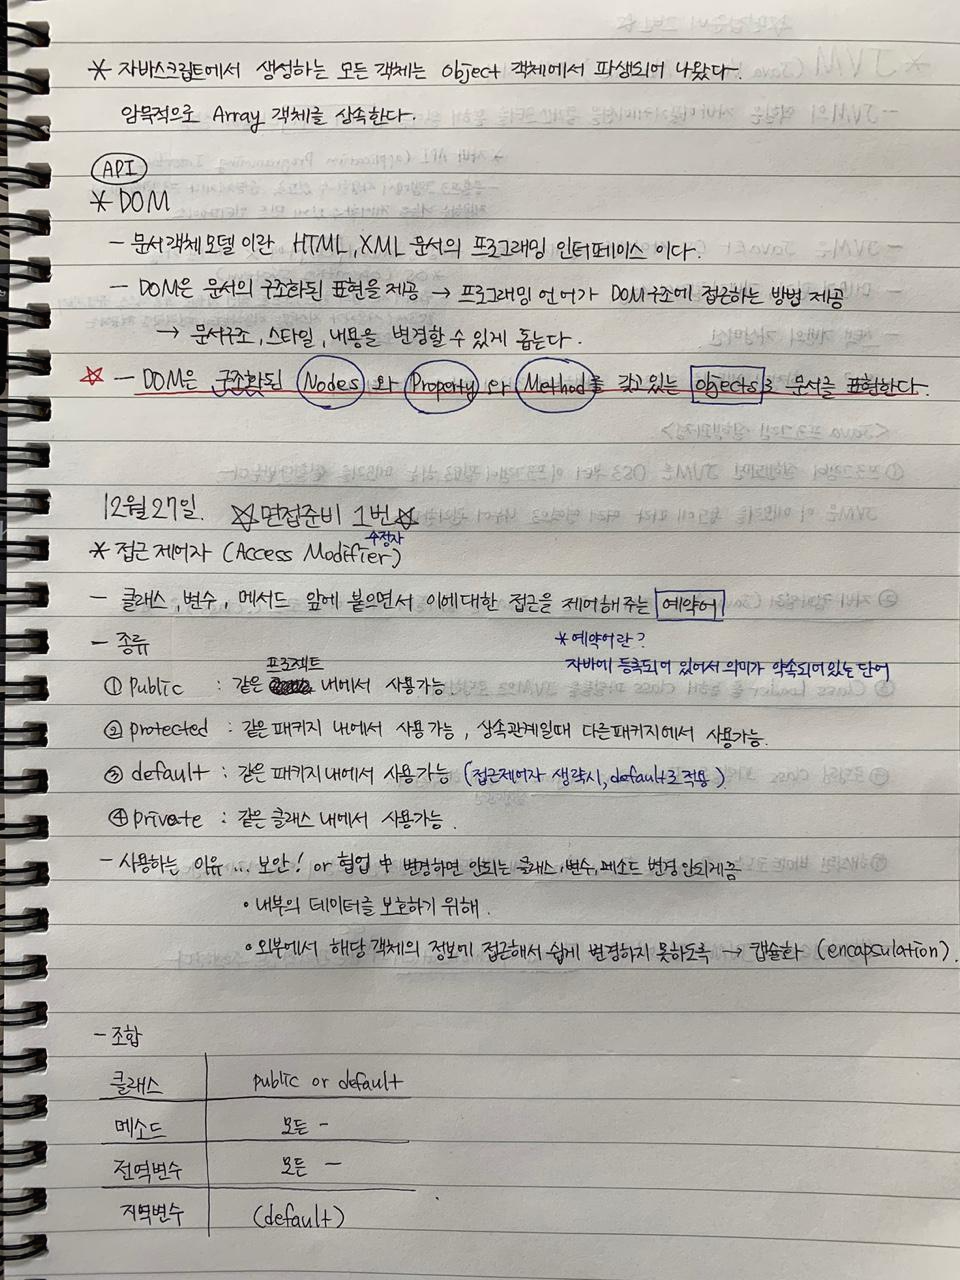 * 자바스크립트에서 생성하는 모든 객체는 Object 객체에서 파생되어 나왔다.
암묵적으로 Array 객체를 상속한다.
API
* DOM
- 문서 객체 모델 이란 HTML, XML 문서의 프로그래밍 인터페이스 이다.
- DOM은 문서의 구조화된 표현을 제공 → 프로그래밍 언어가 DOM구조에 접근하는 방법 제공
→ 문서구조, 스타일, 내용을 변경할 수 있게 돕는다.
☆ - DOM은 구조화된 Nodes 와 Property 와 Method를 갖고 있는 objects로 문서를 표현한다.
12월 27일. ☆면접준비 1번☆
수정자
* 접근 제어자 (Access Modifier)
- 클래스, 변수, 메서드 앞에 붙으면서 이에대한 접근을 제어해주는 예약어
- 종류
* 예약어란?
자바에 등록되어 있어서 의미가 약속되어있는 단어
프로젝트
① Public : 같은 내에서 사용가능.
② protected : 같은 패키지 내에서 사용 가능, 상속관계일때 다른패키지에서 사용가능.
③ default : 같은 패키지내에서 사용가능 (접근제어자 생략시, default로 적용)
④ private : 같은 클래스 내에서 사용가능.
- 사용하는 이유... 보안! or 협업 中 변경하면 안되는 클래스, 변수, 메소드 변경 안되게끔
• 내부의 데이터를 보호하기 위해.
• 외부에서 해당 객체의 정보에 접근해서 쉽게 변경하지 못하도록 → 캡슐화 (encapsulation).
- 조합
클래스 public or default
메소드 모든 -
전역변수 모든 -
지역변수 (default)